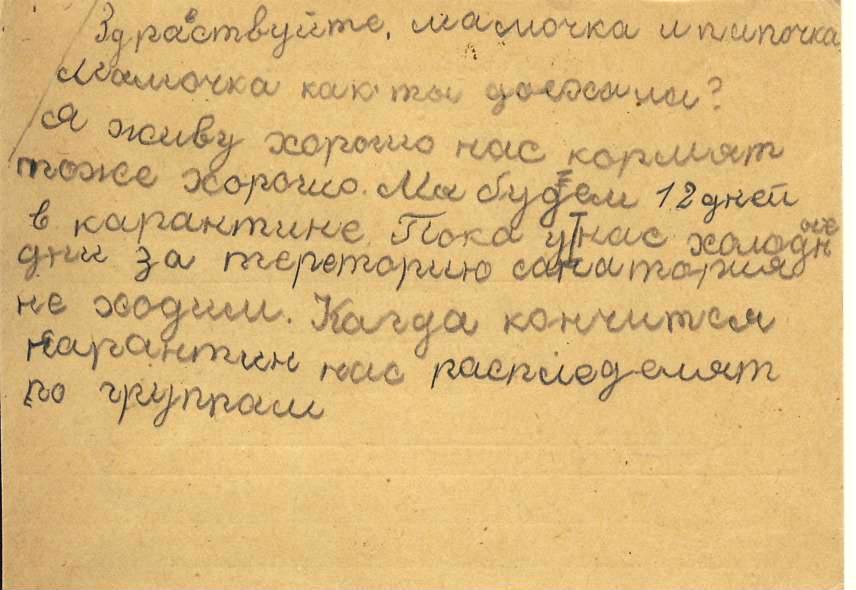 Здраствуйте, мамочка и папочка
Мамочка как ты доехали?
Я живу хорошо нас кормят
тоже хорошо. Мы будем 12 дней
в карантине. Пока у нас холодные
дни за тереторию санатория
не ходим. Кагда кончится
карантин нас распледелят
по группам